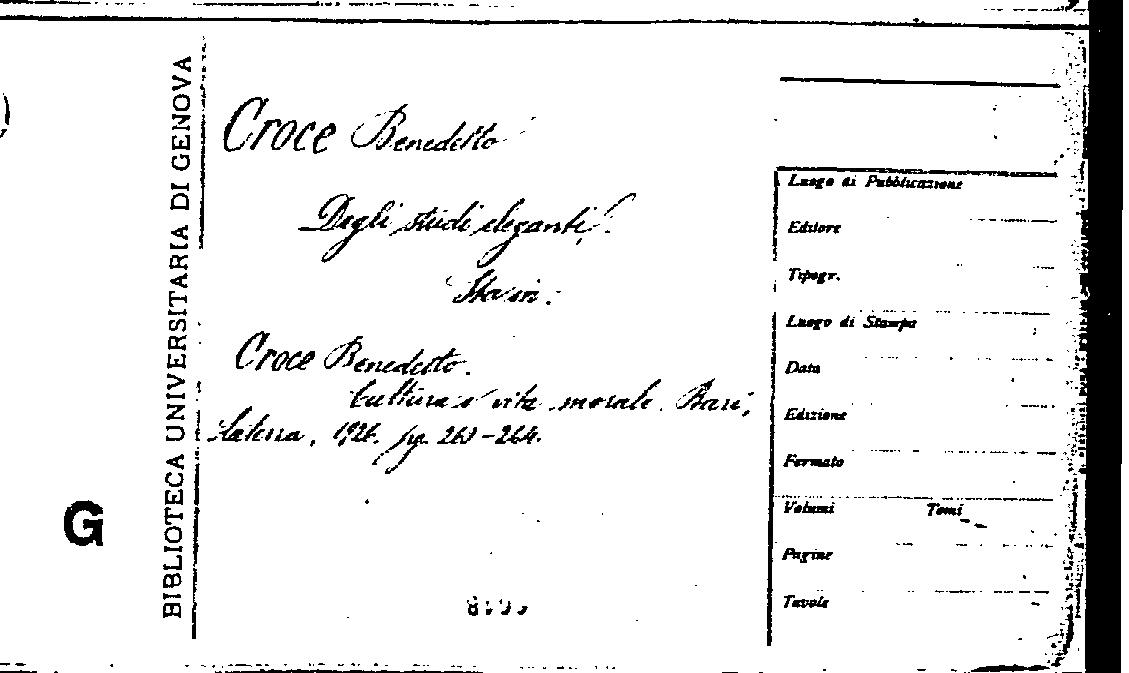 BIBLIOTECA UNIVERSITARIA DI GENOVA
G
Croce Benedetto
Degli studi eleganti!
Sta in:
Croce Benedetto.
Cultura e vita morale. Bari,
Laterza, 1926. pp.
Luogo di Pubblicazione
Editore
Tipogr.
Luogo di Stampa
Data
Edizione
Formato
Volumi Tomi
Pagine
Tavole